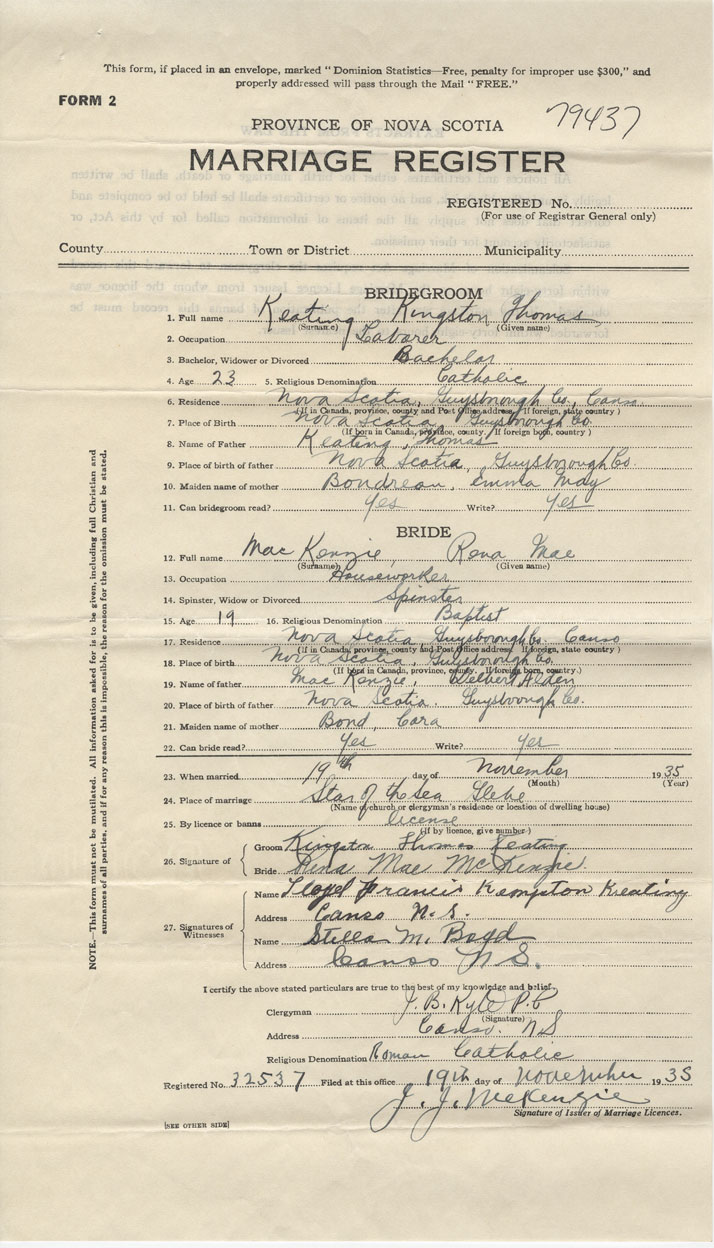 This form, if placed in an envelope, marked "Dominion Statistics—Free, penalty for improper use $300," and
properly addressed will pass through the Mail "FREE."
FORM 2
79437
PROVINCE OF NOVA SCOTIA
MARRIAGE REGISTER
REGISTERED No.
(For use of Registrar General only)
County Town or District Municipality
BRIDEGROOM
1. Full name Keating Kingston Thomas
(Surname) (Given name)
2. Occupation Labarer
3. Bachelor, Widower or Divorced Bachelor
4. Age 23 5. Religious Denomination Catholic
6. Residence Nova Scotia, Guysborough Co., Canso
(If in Canada, province, county and Post Office address, If foreign, state country)
7. Place of Birth Nova Scotia, Guysborough Co.
(If born in Canada, province, county, If foreign born, country)
8. Name of Father Keating, Thomas
9. Place of birth of father Nova Scotia, Guysborough Co.
10. Maiden name of mother Bondreau, Emma May
11. Can bridegroom read? Yes Write? Yes
BRIDE
12. Full name Mac Kenzie, Rena Mae
(Surname) (Given name)
13. Occupation Houseworker
14. Spinster, Widow or Divorced Spinster
15. Age 19 16. Religious Denomination Baptist
17. Residence Nova Scotia Guysborough Co. Canso
(If in Canada, province, county and Post Office address If foreign, state country)
18. Place of birth Nova Scotia, Guysborough Co.
(If born in Canada, province, county, If foreign born, country.)
19. Name of father Mac Kenzie, Delbert Alden
20. Place of birth of father Nova Scotia. Guysborough Co.
21. Maiden name of mother Bond, Cora
22. Can bride read? Yes Write? Yes
23. When married 19th day of November 1935
(Month) (Year)
24. Place of marriage Star of the Sea Glebe
(Name of church or clergyman's residence or location of dwelling house)
25. By licence or banns license
(If by licence, give number)
26. Signature of
Groom Kingston Thomas Keating
Bride Rena Mae McKenzie.
27. Signatures of Witnesses
Name Lloyd Francis Kempton Keating
Address Canso N.S.
Name Stella M. Boyd
Address Canso N S.
I certify the above stated particulars are true to the best of my knowledge and belief.
Clergyman J. B. Kyle P.P
(Signature)
Address Canso. N S
Religious Denomination Roman Catholic
Registered No. 32537 Filed at this office 19th day of November 1935
J. J. McKenzie
Signature of Issuer of Marriage Licences.
[SEE OTHER SIDE]
NOTE.—This form must not be mutilated. All information asked for is to be given, including full Christian and
surnames of all parties, and if for any reason this is impossible, the reason for the omission must be stated.